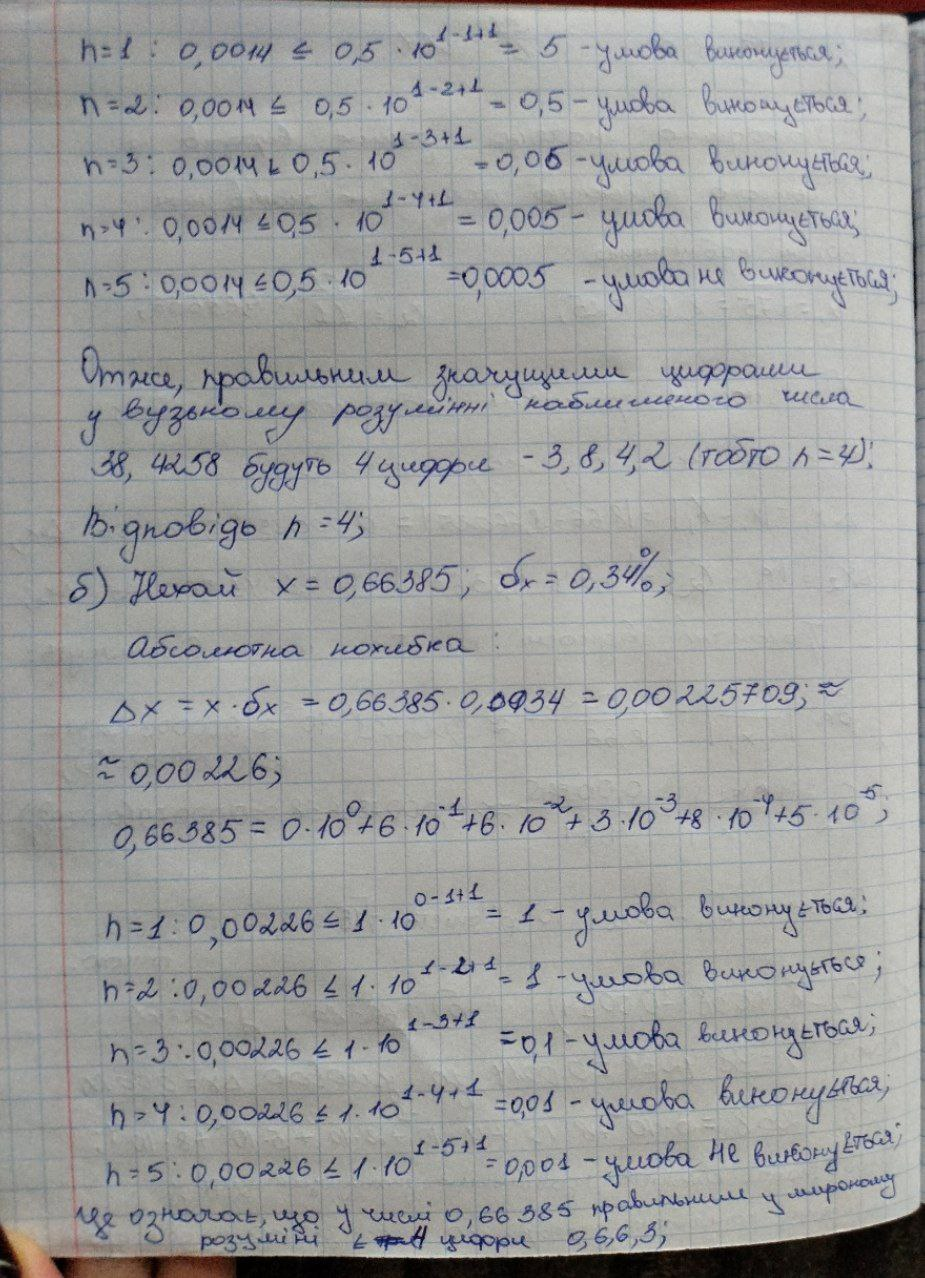 n=1 : 0,0014 ≤ 0,5 · 10^{1-1+1} = 5 - умова виконується;
n=2 : 0,0014 ≤ 0,5 · 10^{1-2+1} = 0,5 - умова виконується;
n=3 : 0,0014 ≤ 0,5 · 10^{1-3+1} = 0,05 - умова виконується;
n=4 : 0,0014 ≤ 0,5 · 10^{1-4+1} = 0,005 - умова виконується;
n=5 : 0,0014 ≤ 0,5 · 10^{1-5+1} = 0,0005 - умова не виконується;
Отже, правильним значущими цифрами
у вузькому розумінні наближеного числа
38,4258 будуть 4 цифри - 3, 8, 4, 2 (тобто n=4);
Відповідь n=4;
б) Нехай x = 0,66385; δx = 0,34%;
Абсолютна похибка :
Δx = x · δx = 0,66385 · 0,0034 = 0,00225709; ≈
≈ 0,00226;
0,66385 = 0·10^0 + 6·10^{-1} + 6·10^{-2} + 3·10^{-3} + 8·10^{-4} + 5·10^{-5};
n=1 : 0,00226 ≤ 1·10^{0-1+1} = 1 - умова виконується;
n=2 : 0,00226 ≤ 1·10^{1-2+1} = 1 - умова виконується;
n=3 : 0,00226 ≤ 1·10^{1-3+1} = 0,1 - умова виконується;
n=4 : 0,00226 ≤ 1·10^{1-4+1} = 0,01 - умова виконується;
n=5 : 0,00226 ≤ 1·10^{1-5+1} = 0,001 - умова не виконується;
Це означає, що у числі 0,66385 правильним у широкому
розуміні є 4 цифри 0,6,6,3;